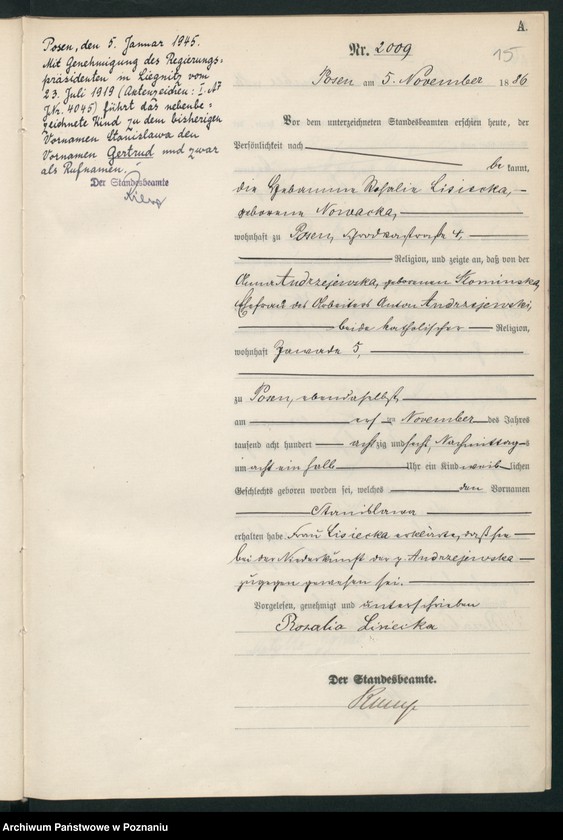 A.
15
Posen, den 5. Januar 1945.
Mit Genehmigung des Regierungs-
präsidenten in Liegnitz vom
23. Juli 1919 (Aktenzeichen: I.
J.Nr. 4045) führt das nebenbe-
zeichnete Kind zu dem bisherigen
Vornamen Stanislawa den
Vornamen Gertrud und zwar
als Rufnamen.
Der Standesbeamte
Nr. 2009
Posen am 5. November 1886
Vor dem unterzeichneten Standesbeamten erschien heute, der
Persönlichkeit nach
bekannt,
die Hebamme Rosalie Lisiecka,
geborene Nowacka,
wohnhaft zu Posen, 4,
Religion, und zeigte an, daß von der
Anna Andrzejewska, geborenen Slominska,
Ehefrau des Arbeiters Anton Andrzejewski,
beide katholischer Religion,
wohnhaft Zawade 5,
zu Posen, ebendaselbst
am November des Jahres
tausend acht hundert achtzig und sechs, Nachmittags
um acht ein halb Uhr ein Kind weiblichen
Geschlechts geboren worden sei, welches den Vornamen
Stanislawa
erhalten habe. Frau Lisiecka erklärte, daß sie
bei der Niederkunft der p. Andrzejewska
zugegen gewesen sei.
Vorgelesen, genehmigt und unterschrieben
Rozalia Lisiecka
Der Standesbeamte.
Archiwum Państwowe w Poznaniu